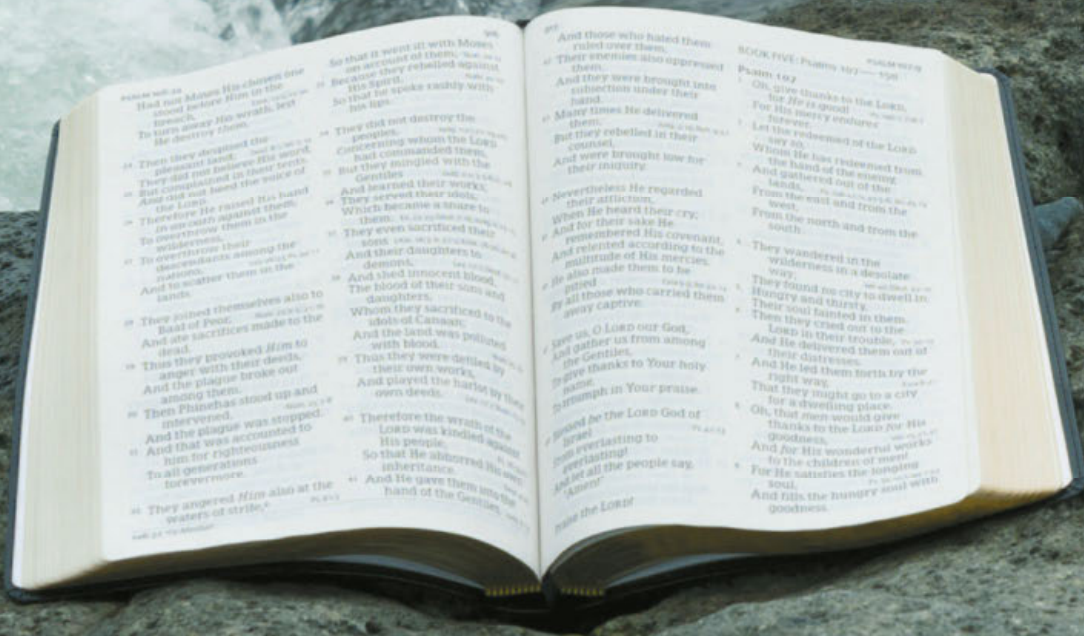 PSALM 106:24
Had not Moses His chosen one
stood before Him in the
breach,
To turn away His wrath, lest
He destroy them.
24 Then they despised the
pleasant land;
They did not believe His word,
25 But complained in their tents,
And did not heed the voice of
the LORD.
26 Therefore He raised His hand
in an oath against them,
To overthrow them in the
wilderness,
27 To overthrow their
descendants among the
nations,
And to scatter them in the
lands.
28 They joined themselves also to
Baal of Peor,
And ate sacrifices made to the
dead.
29 Thus they provoked Him to
anger with their deeds,
And the plague broke out
among them.
30 Then Phinehas stood up and
intervened,
And the plague was stopped.
31 And that was accounted to
him for righteousness
To all generations
forevermore.
32 They angered Him also at the
waters of strife,
So that it went ill with Moses
on account of them;
33 Because they rebelled against
His Spirit,
So that he spoke rashly with
his lips.
34 They did not destroy the
peoples,
Concerning whom the LORD
had commanded them,
35 But they mingled with the
Gentiles
And learned their works;
36 They served their idols,
Which became a snare to
them.
37 They even sacrificed their
sons
And their daughters to
demons,
38 And shed innocent blood,
The blood of their sons and
daughters,
Whom they sacrificed to the
idols of Canaan;
And the land was polluted
with blood.
39 Thus they were defiled by
their own works,
And played the harlot by their
own deeds.
40 Therefore the wrath of the
LORD was kindled against
His people,
So that He abhorred His own
inheritance.
41 And He gave them into the
hand of the Gentiles,
And those who hated them
ruled over them.
42 Their enemies also oppressed
them,
And they were brought into
subjection under their
hand.
43 Many times He delivered
them;
But they rebelled in their
counsel,
And were brought low for
their iniquity.
44 Nevertheless He regarded
their affliction,
When He heard their cry;
45 And for their sake He
remembered His covenant,
And relented according to the
multitude of His mercies.
46 He also made them to be
pitied
By all those who carried them
away captive.
Save us, O LORD our God,
And gather us from among
the Gentiles,
To give thanks to Your holy
name,
To triumph in Your praise.
Blessed be the LORD God of
Israel
From everlasting to
everlasting!
And let all the people say,
"Amen!"
Praise the LORD!
BOOK FIVE: Psalms 107—150
Psalm 107
Oh, give thanks to the LORD,
for He is good!
For His mercy endures
forever.
2 Let the redeemed of the LORD
say so,
Whom He has redeemed from
the hand of the enemy,
3 And gathered out of the
lands,
From the east and from the
west,
From the north and from the
south.
4 They wandered in the
wilderness in a desolate
way;
They found no city to dwell in.
5 Hungry and thirsty,
Their soul fainted in them.
6 Then they cried out to the
LORD in their trouble,
And He delivered them out of
their distresses.
7 And He led them forth by the
right way,
That they might go to a city
for a dwelling place.
8 Oh, that men would give
thanks to the LORD for His
goodness,
And for His wonderful works
to the children of men!
9 For He satisfies the longing
soul,
And fills the hungry soul with
goodness.